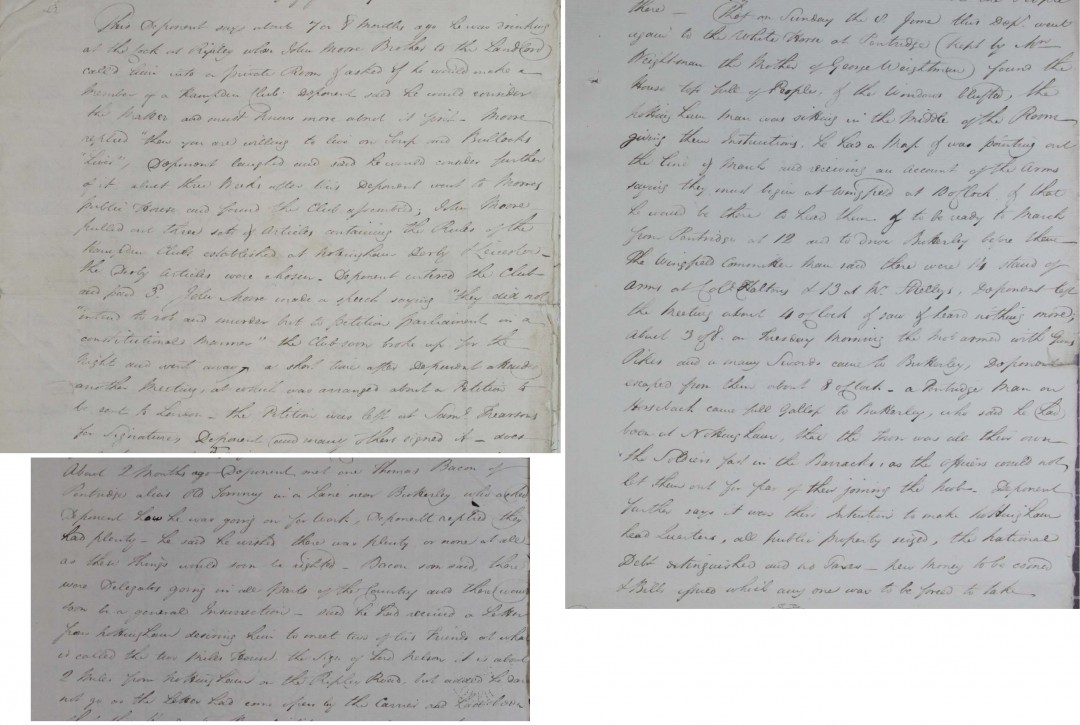 This Deponent says about 7 or 8 Months ago he was drinking
at the Cock at Ripley when John Moore Brother to the Landlord
called him into a private Room & asked if he would make a
Member of a Hampden Club: Deponent said he would consider
the Matter and must know more about it first - Moore
replied "then you are willing to live on Soup and Bullocks
Liver", Deponent laughed and said he would consider further
of it about three Weeks after this Deponent went to Moores
public House and found the Club assembled; John Moore
pulled out three sets of Articles containing the Rules of the
Hampden Clubs established at Nottingham Derby & Leicester -
the Derby Articles were chosen - Deponent entered the Club
and paid 3d. John Moore made a speech saying "they did not
intend to rob and murder but to petition parliament in a
constitutional manner" the Club soon broke up for the
Night and went away, a short time after Deponent attended
another Meeting, at which was arranged about a Petition to
be sent to London - the Petition was left at Saml. Fearsons
for Signatures, Deponent and many others signed it - does
About 2 Months ago Deponent met one Thomas Bacon of
Pentridge alias Old Tommy in a Lane near Butterley who asked
Deponent how he was going on for Work, Deponent replied they
had plenty - he said he wished there was plenty or none at all
as these Things would soon be righted - Bacon soon said, there
were Delegates going in all parts of the Country and there would
soon be a general Insurrection - said he had received a Letter
from Nottingham desiring him to meet two of his Friends at what
is called the two Miles House the Sign of Lord Nelson it is about
2 Miles from Nottingham on the Ripley Road, but added he did
not go as the Letter had come open by the Carrier and
there - That on Sunday the 8 June this Dept. went
again to the White Horse at Pentridge (kept by Mrs
Weightman the Mother of George Weightman) found the
House top full of People, & the Windows blinded, the
Nottingham Man was sitting in the Middle of the Room
giving them Instructions. he had a Map & was pointing out
the Line of March and receiving an account of the Arms
saying they must begin at Wingfield at 8 oClock, & that
he would be there to head them & to be ready to March
from Pentridge at 12 and to drive Butterley before them -
The Wingfield Committee Man said there were 14 stand of
Arms at Col. Haltons & 13 at Mr. Strelleys, Deponent left
the Meeting about 4 oClock & saw & heard nothing more;
about 3 of 8. on Tuesday Morning the Mob armed with Guns
Pikes and a many Swords came to Butterley, Deponent
escaped from them about 8 oClock - a Pentridge Man on
Horseback came full Gallop to Butterley, who said he had
been at Nottingham, that the Town was all their own -
the Soldiers fast in the Barracks, as the officers would not
let them out for fear of their joining the Mob - Deponent
further says it was their Intention to make Nottingham
head Quarters, all public property seized, the national
Debt extinguished and no Taxes - New Money to be coined
& Bills issued which any one was to be forced to take